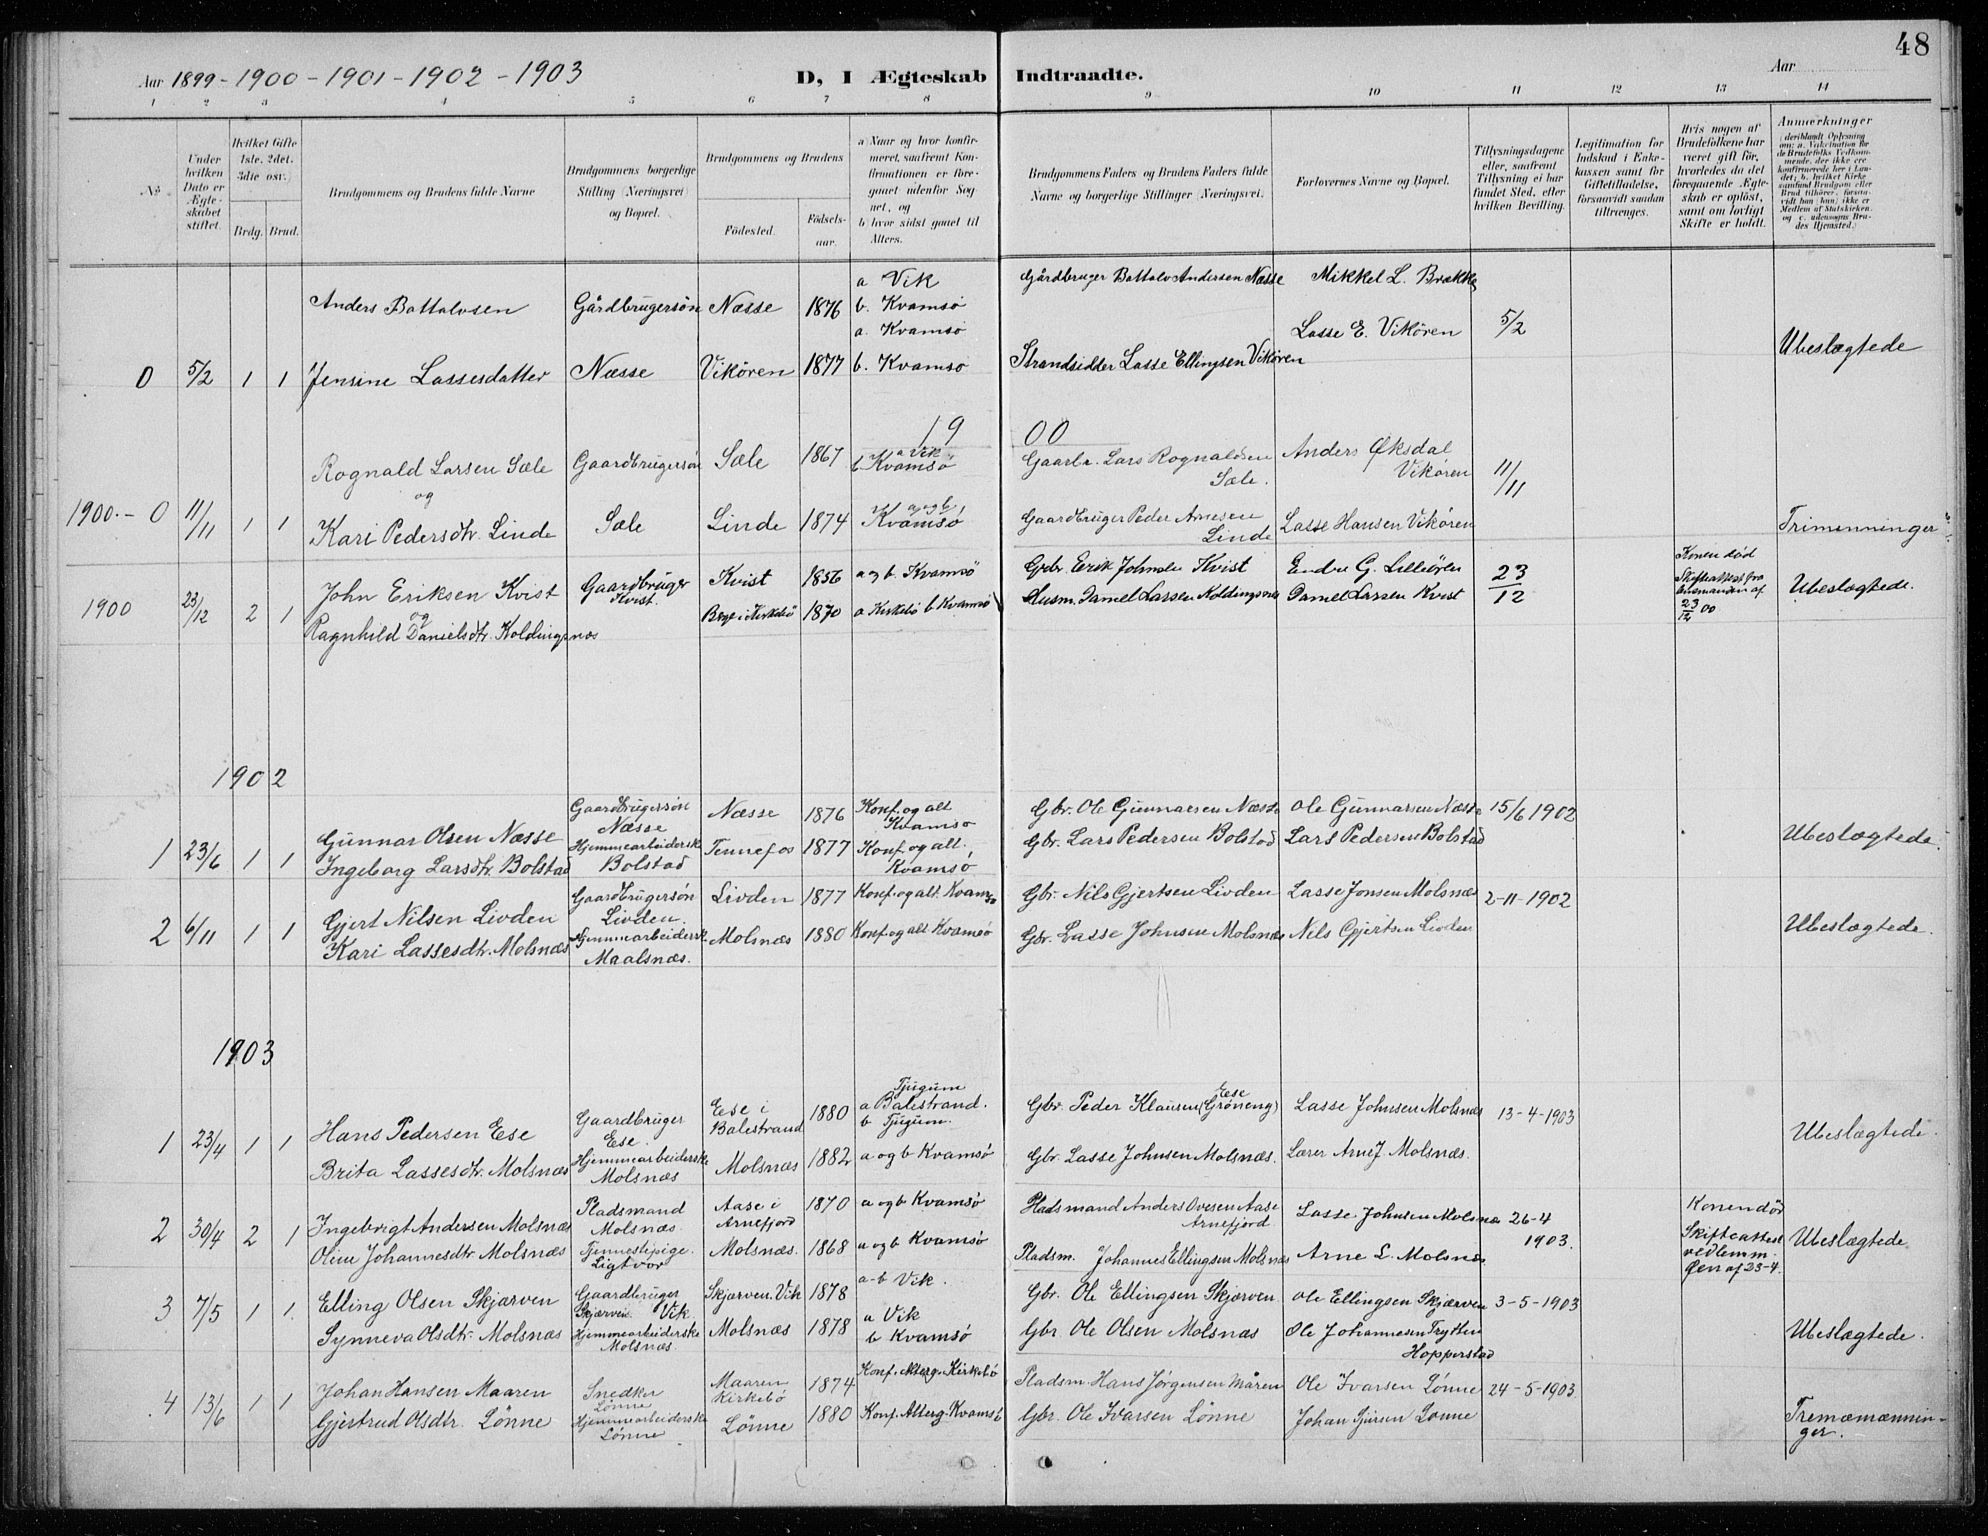 48
Aar 1899 - 1900 - 1901 - 1902 - 1903
D, I Ægteskab Indtraadte.
Aar
1 2 3 4 5 6 7 8 9 10 11 12 13 14
No.
Under hvilken Dato er Ægteskabet stiftet.
Hvilket Gifte 1ste. 2det. 3die osv.
Brdg. Brud.
Brudgommens og Brudens fulde Navne
Brudgommens borgerlige Stilling (Næringsvei) og Bopæl.
Brudgommens og Brudens
Födested.
Födselsaar.
a Naar og hvor konfirmeret, saafremt Konfirmationen er foregaaet udenfor Sognet, og
b hvor sidst gaaet til Alters.
Brudgommens Faders og Brudens Faders fulde Navne og borgerlige Stillinger (Næringsvei).
Forlovernes Navne og Bopæl.
Tillysningsdagene eller, saafremt Tillysning ei har fundet Sted, efter hvilken Bevilling.
Legitimation for Indskud i Enkekassen samt for Giftetilladelse, forsaavidt saadan tiltrænges.
Hvis nogen af Brudefolkene har været gift før, hvorledes da det foregaaende Ægteskab er opløst, samt om lovligt Skifte er holdt.
Anmærkninger (deriblandt Oplysning om: a. Vakcination for de Brudefolks Vedkommende, der ikke ere konfirmerede her i Landet; b. hvilket Kirkesamfund Brudgom eller Brud tilhörer, forsaavidt han (hun) ikke er Medlem af Statskirken, og c. udensogns Brudes Hjemsted.)
Anders Bottolvsen Gårdbrugersön Næsse 1876 a Vik b. Kvamsö Gårdbruger Bottolv Andersen Næsse Mikkel L. Brække
0 5/2 1 1 Jensine Lassesdatter Næsse Vikören 1877 a. Kvamsö b. Kvamsö Strandsidder Lasse Ellingsen Vikören Lasse E. Vikören 5/2 Ubeslægtede
1900
Rognald Larsen Sæle Gaardbrugersön Sæle 1867 a Vik b Kvamsö Gaarbr. Lars Rognaldsen Sæle. Anders Øksdal Vikören 11/11
og
1900.- 0 11/11 1 1 Kari Pedersdtr. Linde Sæle Linde 1874 a og b, Kvamsö Gaardbruger Peder Arnesen Linde Lasse Hansen Vikören Trimenninger
1900 23/12 2 1 John Eriksen Kvist Gaardbruger Kvist. Kvist 1856 a og b. Kvamsö Gbr. Erik Johnsen Kvist Endre G. Lilleören 23/12 Konen död Skifteattest fra 23/12 00 Ubeslægtede.
og
Ragnhild Danielsdtr. Koldingsnæs 1870 a Kirkebö b Kvamsö Husm. Daniel Larsen Koldingsnæs Daniel Larsen Kvist
1902
1 23/6 1 1 Gunnar Olsen Næsse Gaardbrugersön Næsse Næsse 1876 Konf. og alt Kvamsö Gbr. Ole Gunnarsen Næsse Ole Gunnarsen Næsse 15/6 1902 Ubeslægtede.
Ingeborg Larsdtr. Bolstad Hjemmearbeidersk. Bolstad Tennefos 1877 Konf. og alt. Kvamsö Gbr. Lars Pedersen Bolstad Lars Pedersen Bolstad
2 6/11 1 1 Gjert Nilsen Livden Gaardbrugersön Livden. Livden 1877 Konf. og alt Kvamsö Gbr. Nils Gjertsen Livden Lasse Jonsen Molsnæs 2-11-1902 Ubeslægtede.
Kari Lassesdtr. Molsnæs Hjemmearbeidersk. Maalsnæs. Molsnæs 1880 Konf. og alt Kvamsö Gbr. Lasse Johnsen Molsnæs Nils Gjertsen Livden
1903
1 23/4 1 1 Hans Pedersen Ese Gaardbruger Ese. Ese i Balestrand 1880 Tjugum a Balestrand. b Tjugum. Gbr. Peder Klausen Ese (Gröneng) Lasse Johnsen Molsnæs 13-4-1903 Ubeslægtede.
Brita Lassesdtr. Molsnæs Hjemmearbeiderske Molsnæs Molsnæs 1882 a og b Kvamsö Gbr. Lasse Johnsen Molsnæs. Lærer Arne J Molsnæs.
2 30/4 2 1 Ingebrigt Andersen Molsnæs Pladsmand Molsnæs. Aase i Arnefjord 1870 a og b Kvamsö Pladsmand Anders Ovesen Aase Arnefjord Lasse Johnsen Molsnæs 26-4 1903. Konen död Skifteattest vedlemm. Den af 23-4. Ubeslægtede
Oline Johannesdtr. Molsnæs Tjenestepige. Ligtvor Molsnæs. 1868 a og b Kvamsö Pladsm. Johannes Ellingsen Molsnæs Arne L. Molsnæs
3 7/5 1 1. Elling Olsen Skjærven Gaardbruger Skjærven. Vik Skjærven. Vik 1878 a-b Vik. Gbr. Ole Ellingsen Skjærven Ole Ellingsen Skjærven 3-5-1903
Synneva Olsdtr. Molsnæs Hjemmearbeiderske Molsnæs. Molsnæs 1878 a Vik b Kvamsö Gbr. Ole Olsen Molsnæs Ole Johannesen Tryti Hopperstad Ubeslægtede.
4 13/6 1 1 Johan Hansen Maaren Snedker Lönne Maaren Kirkebö 1874 Konf. Alterg. Kirkebö Pladsm. Hans Jörgensen Måren Ole Ivarsen Lönne 24-5-1903
Gjertrud Olsdtr. Lönne Hjemmearbeiderske Lönne Lönne 1880 Konf. Alterg. Kvamsö Gbr. Ole Ivarsen Lönne Johan Lönne Tremæmænninger.